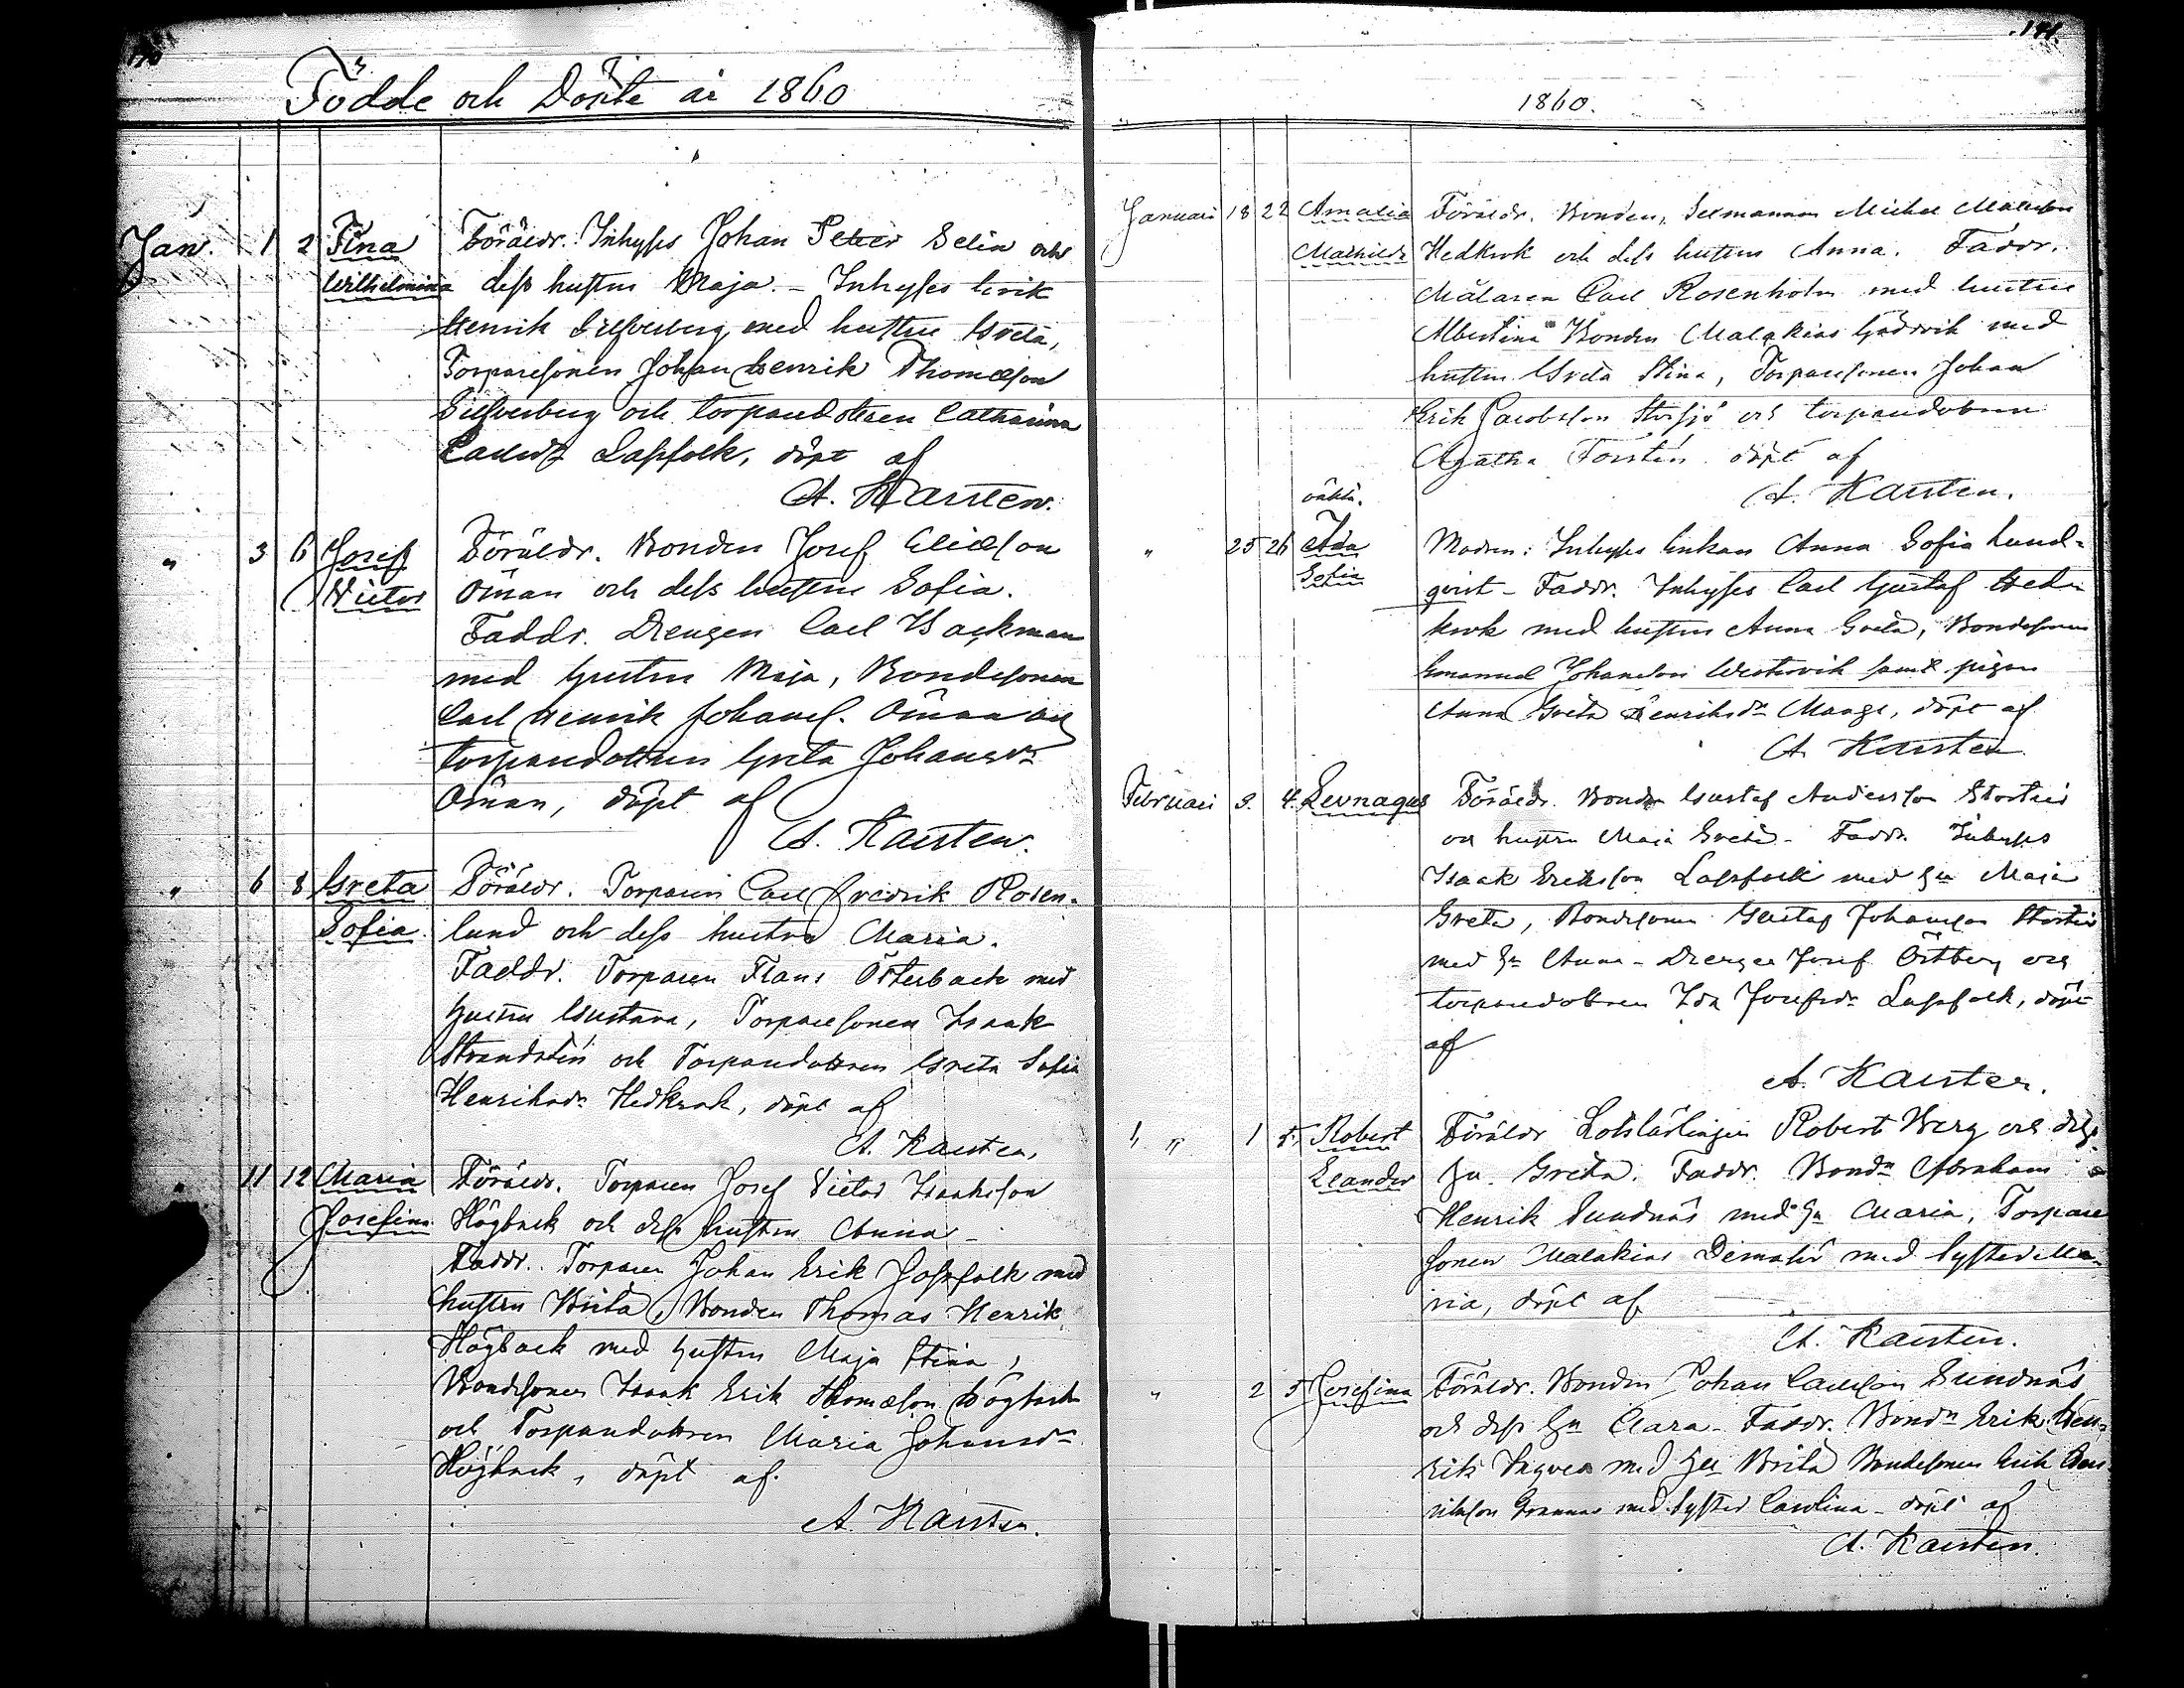 Födde och Döpte år 1860
Jan. 1 2 Fina Föräldr. Inhyses Johan Peter Selin och
Wilhelmina dess hustru Maja. – Inhyses Erik
Henrik Silfverberg med hustru Greta,
Torparesonen Johan Henrik Thomasson
Silfverberg och torparedottren Catharina
Lassfolk, döpt af
A. Karsten.
" 3 6 Josef Föräldr. Bonden Josef Eliasson
Victor Öman och dess hustru Sofia.
Faddr. Drengen Carl Backman
med hustru Maja, Bondesonen
Carl Henrik Johans. Öman och
torparedottren Greta Johansdr
Öman, döpt af
A. Karsten.
" 6 8 Greta Föräldr. Torparen Carl Fredrik Rosen-
Sofia. lund och dess hustru Maria.
Faddr. Torparen Frans Österback med
hustru Gustava, Torparesonen Isaak
Strandstén och Torparedottren Greta Sofia
Henriksdr Hedkrok, döpt af
A. Karsten,
" 11 12 Maria Föräldr. Torparen Josef Victor Isaksson
Josefina Högback och dess hustru Anna –
Faddr. Torparen Johan Erik Jossfolk med
hustru Brita, Bonden Thomas Henrik
Högback med hustru Maja Stina,
Bondesonen Isaak Erik Thomasson Högback
och Torparedottren Maria Johansdr
Högback, döpt af.
A. Karsten.
191.
1860.
Januari 18 22 Amalia Föräldr. Bonden, Michel
Mathilda Hedkrok och dess hustru Anna. Faddr.
Målaren Carl Rosenholm med hustru
Albertina Bonden Malakias med
hustru Greta Stina, Torparesonen Johan
Erik Jacobsson Storsjö och torparedottren
Agatha Forstén döpt af
A. Karsten.
oäkta.
" 25 26 Ida Modren: Inhyses Enkan Anna Sofia Lund-
Sofia qvist – Faddr. Inhyses Carl Gustaf Hed-
krok med hustru Anna Greta, Bondesonen
Emanuel Johansson Westervik samt pigan
Anna Greta Henriksdr Mange, döpt af
A. Karsten
Februari 3. 4. Levnagus Föräldr. Bonden Gustaf Andersson
och hustru Maja Greta – Faddr. Inhyses
Isaak Eriksson Lassfolk med hu Maja
Greta, Bondesonen Gustaf Johansson
med hu Anna – Drengen Josef Östberg och
torparedottren Ida Josefsdr Lassfolk, döpt
af
A. Karsten.
" " 1 5. Robert Föräldr Lotslärlingen Robert Berg och dess
Leander hu. Greta. Faddr. Bondn Abraham
Henrik Sundnäs med hu Maria, Torpare
sonen Malakias med syster Ma-
ria, döpt af
A. Karsten.
" 2 5 Josefina Föräldr. Bonden Johan Carlsson Sundnäs
och dess hu Clara – Faddr. Bondn Erik Hen-
riks med hu Brita Bondesonen Erik Hen-
riksson med syster Carolina – döpt af
A. Karsten.